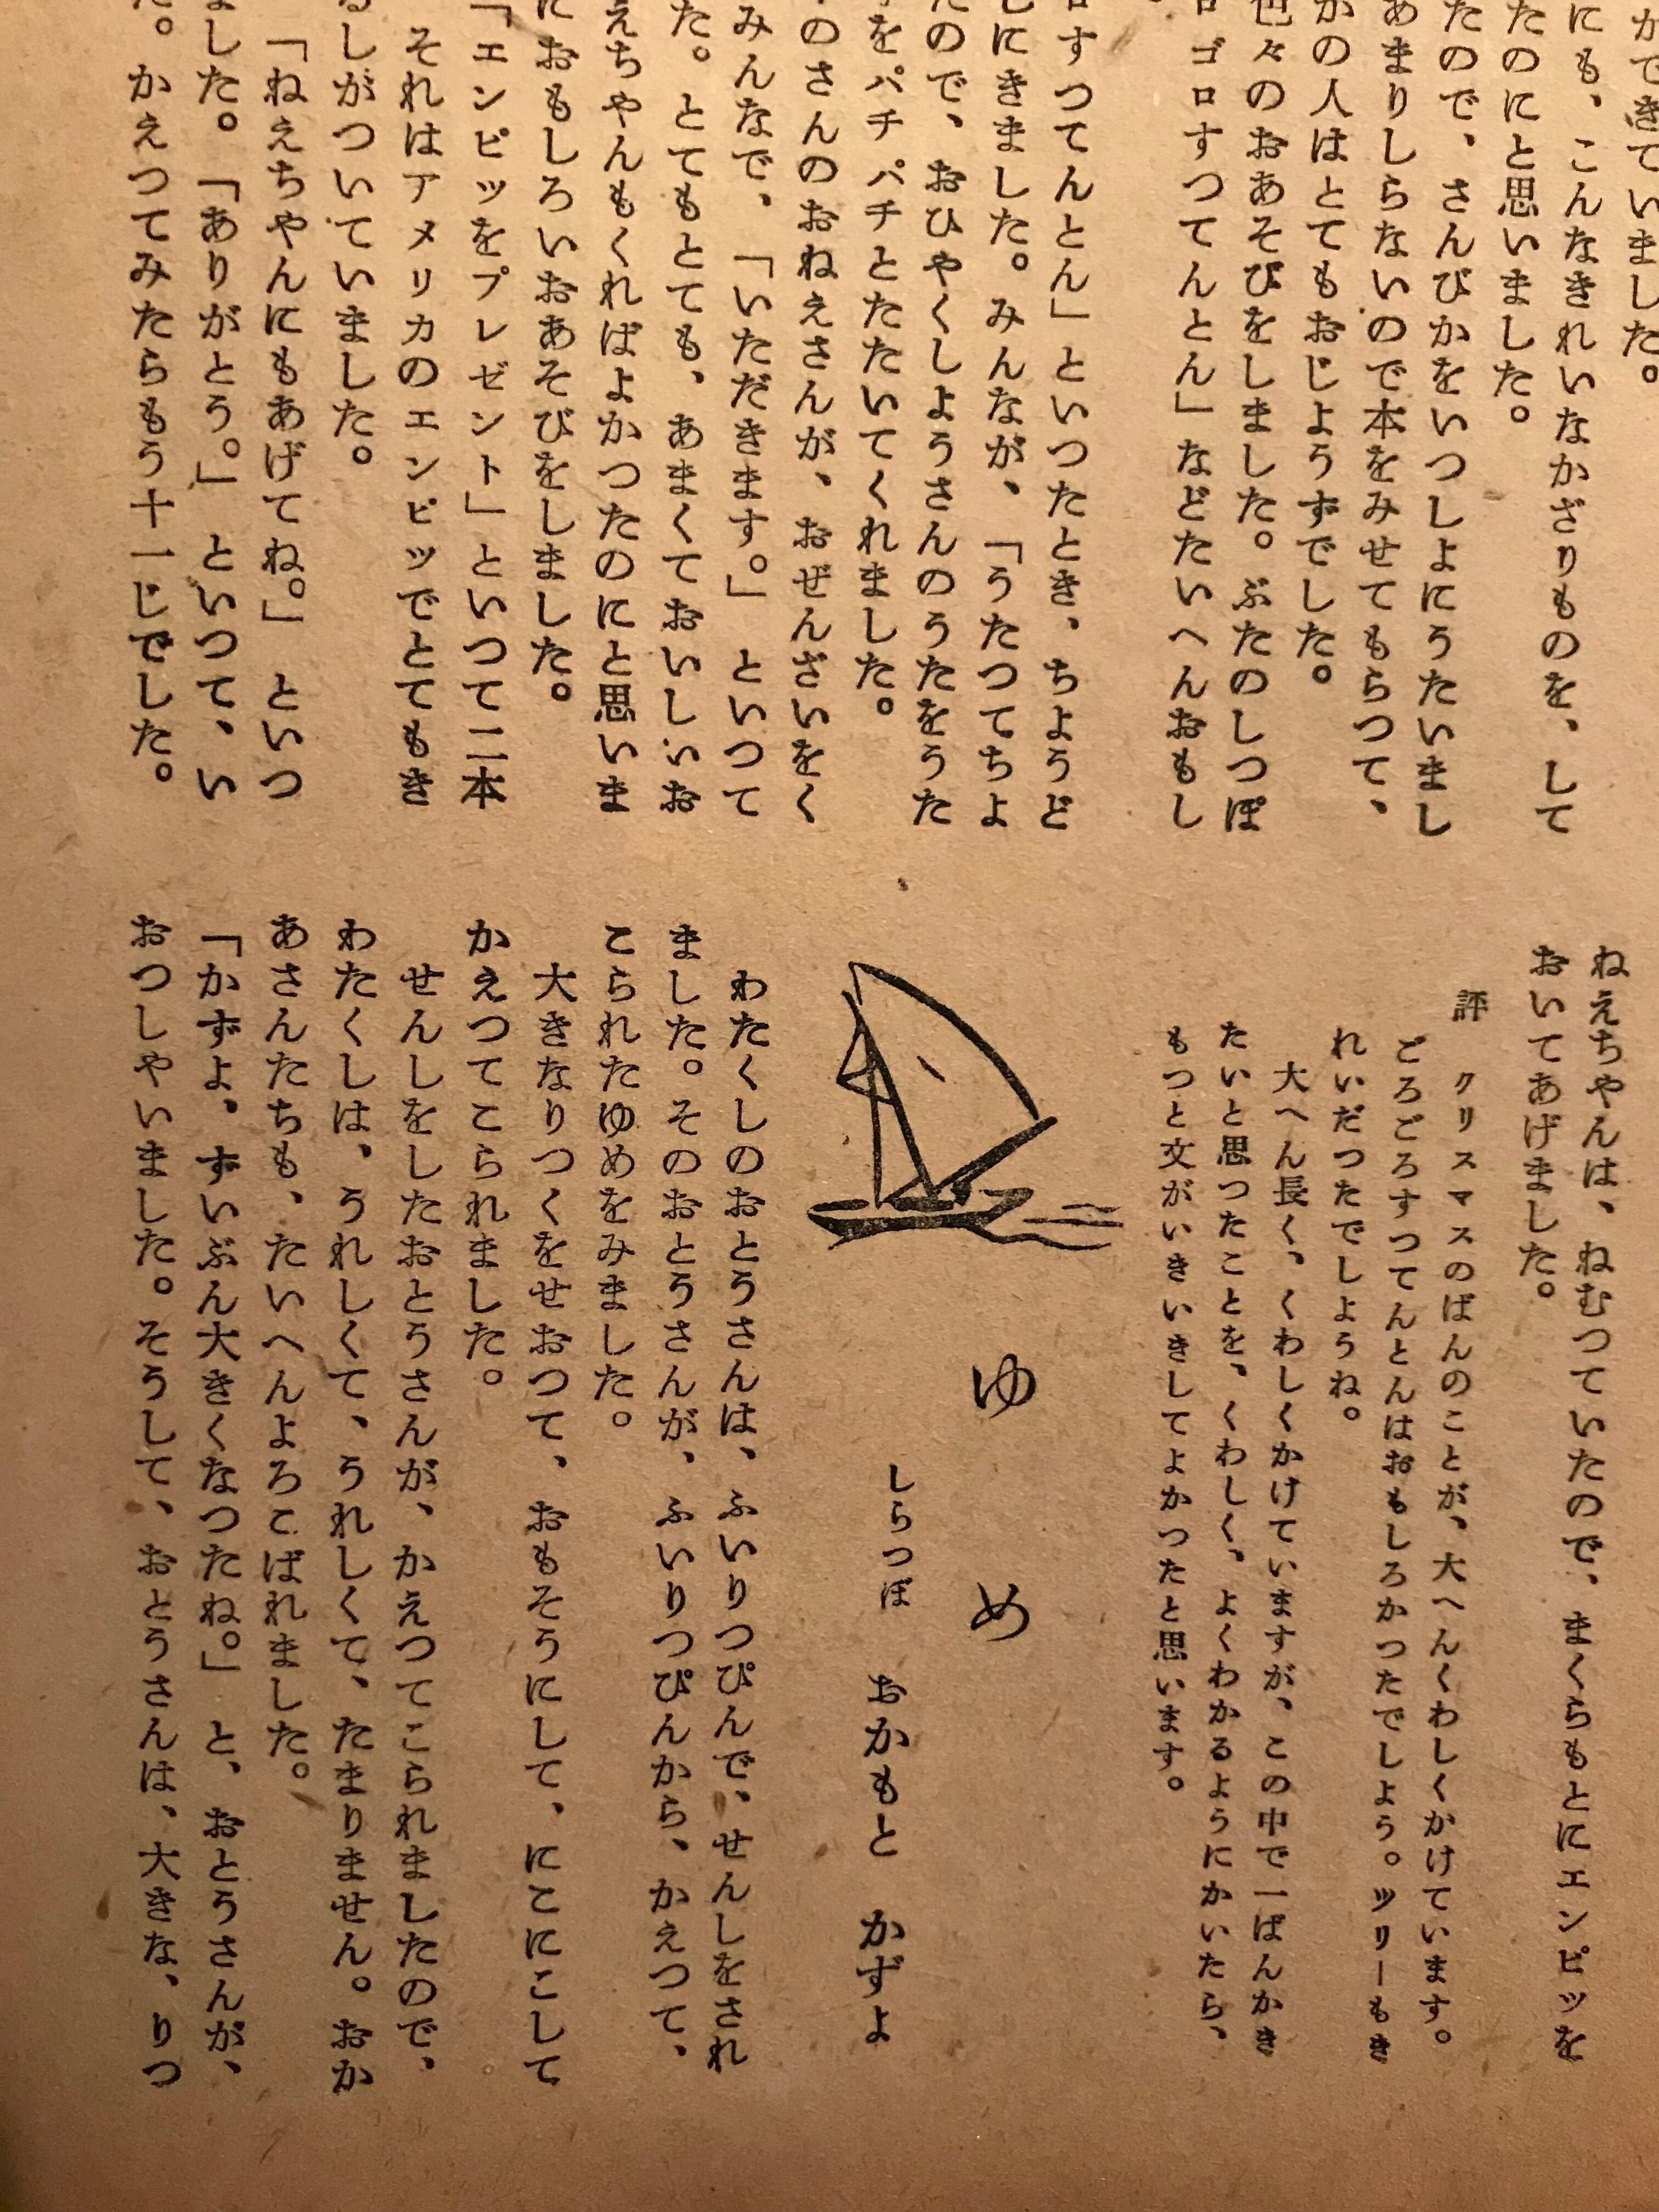 ができていました。
にも、こんなきれいなかざりものを、して
たのにと思いました。
たので、さんびかをいつしよにうたいまし
あまりしらないので本をみせてもらつて、
かの人はとてもおじようずでした。
色々のおあそびをしました。ぶたのしつぽ
ロゴロすつてんとん」などたいへんおもし
ロすつてんとん」といつたとき、ちようど
しにきました。みんなが、「うたつてちよ
たので、おひやくしようさんのうたをうた
をパチパチとたたいてくれました。
のさんのおねえさんが、おぜんざいをく
みんなで、「いただきます。」といつて
た。とてもとても、あまくておいしいお
えちやんもくればよかつたのにと思いま
におもしろいおあそびをしました。
「エンピッをプレゼント」といつて二本
それはアメリカのエンピッでとてもき
るしがついていました。
「ねえちやんにもあげてね。」といつ
ました。「ありがとう。」といつて、い
た。かえつてみたらもう十一じでした。
ねえちやんは、ねむつていたので、まくらもとにエンピッを
おいてあげました。
評 クリスマスのばんのことが、大へんくわしくかけています。
ごろごろすつてんとんはおもしろかつたでしよう。ツリーもき
れいだつたでしようね。
大へん長く、くわしくかけていますが、この中で一ばんかき
たいと思つたことを、くわしく、よくわかるようにかいたら、
もつと文がいきいきしてよかつたと思います。
ゆめ
しらつぼ おかもと かずよ
わたくしのおとうさんは、ふいりつぴんで、せんしをされ
ました。そのおとうさんが、ふいりつぴんから、かえつて、
こられたゆめをみました。
大きなりつくをせおつて、おもそうにして、にこにこして
かえつてこられました。
せんしをしたおとうさんが、かえつてこられましたので、
わたくしは、うれしくて、うれしくて、たまりません。おか
あさんたちも、たいへんよろこばれました。
「かずよ、ずいぶん大きくなつたね。」と、おとうさんが、
おつしやいました。そうして、おとうさんは、大きな、りつ